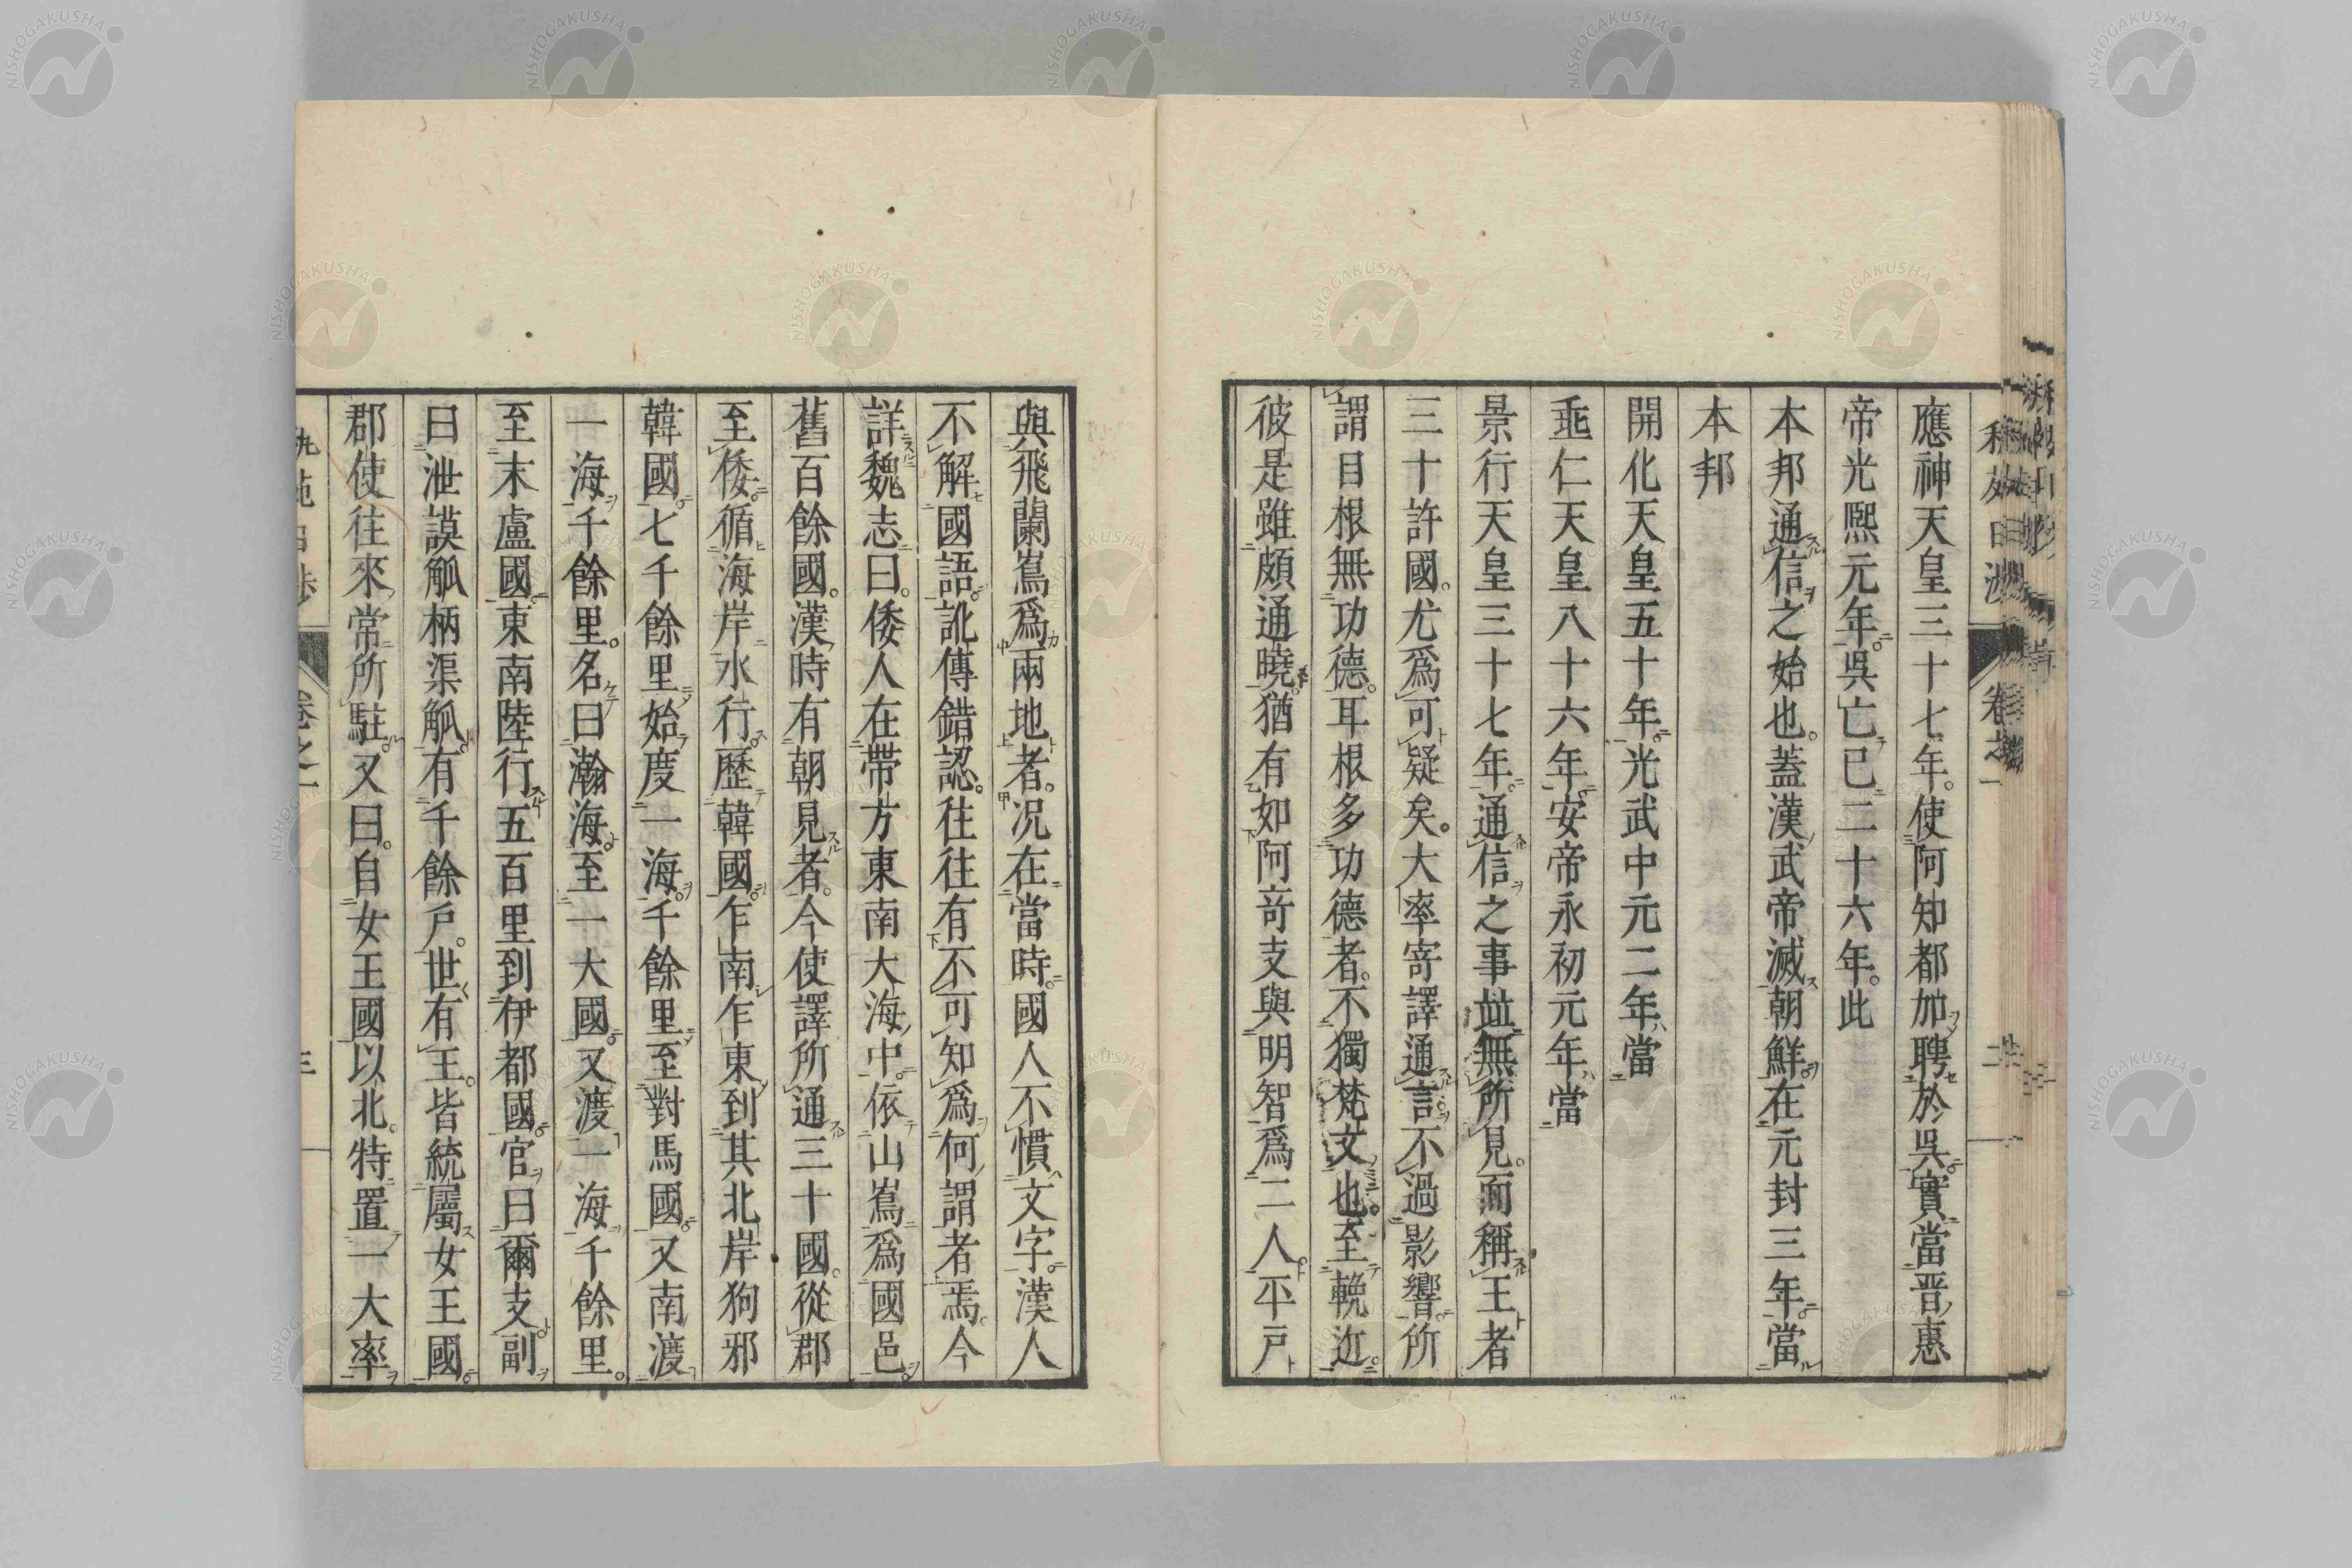 應神天皇三十七年。使阿知都加聘於吳。實當晉惠
帝光熈元年。吳亡已二十六年。此
本邦通信之始也。蓋漢武帝滅朝鮮。在元封三年。當
本邦
開化天皇五十年。光武中元二年當
垂仁天皇八十六年。安帝永初元年當
景行天皇三十七年。通信之事竝無所見。而稱王者
三十許國。尤爲可疑矣。大率寄譯通言。不過影響。所
謂目根無功德。耳根多功德者。不獨梵文也。至輓近
彼是雖頗通曉。猶有如阿奇支與明智爲二人。平戸
與飛蘭嶌爲兩地者。况在當時。國人不慣文字。漢人
不解國語。訛傳錯認。往往有不可知爲何謂者焉。今
詳魏志曰。倭人在帶方東南大海中。依山嶌爲國邑
舊百餘國。漢時有朝見者。今使譯所通三十國。從郡
至倭。循海岸水行。歷韓國。乍南乍東。到其北岸狗邪
韓國。七千餘里。始度一海。千餘里。至對馬國。又南渡
一海千餘里。名曰瀚海。至一大國。又渡一海千餘里。
至末盧國。東南陸行五百里。到伊都國。官曰爾支。副
曰泄謨觚柄渠觚。有千餘戸。世有王。皆統屬女王國。
郡使往來常所駐。又曰。自女王國以北。特置一大率
卷之一
二
卷之一
三
NISHOGAKUSHA